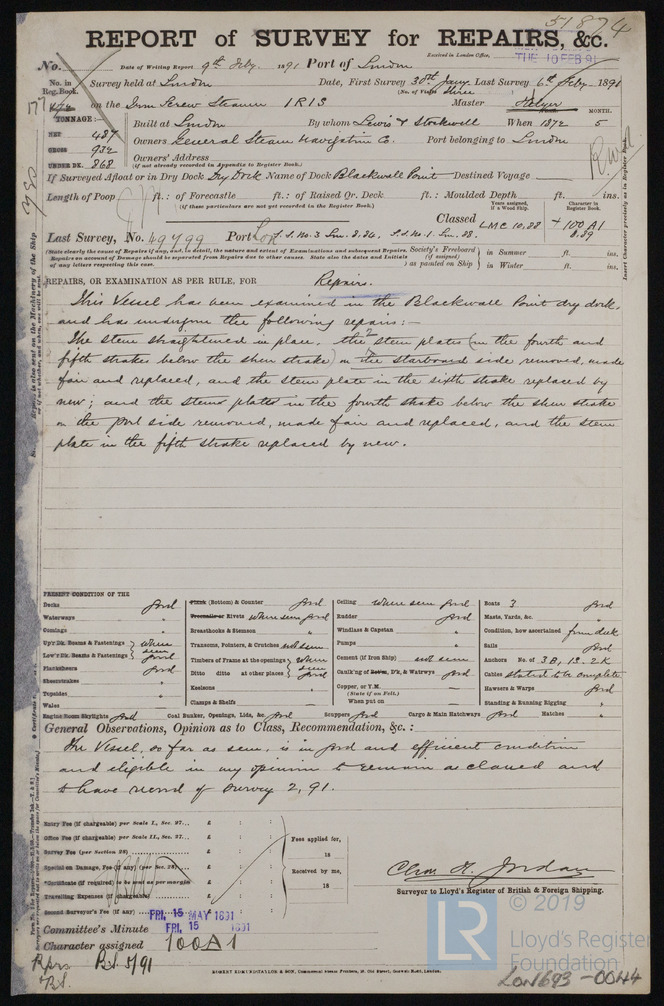 51874
REPORT of SURVEY for REPAIRS, &c.
Received in London Office,
TUE 10 FEB 91
No. Date of Writing Report 9th Feby. 1891 Port of London
No. in Reg. Book. Survey held at London Date, First Survey 30th Jany. Last Survey 6th Feby. 1891
(No. of Visits three
on the Iron Screw Steamer IRIS Master Helyer
TONNAGE:— MONTH.
NET 487 Built at London By whom Lewis & Stockwell When 1872 5
GROSS 932 Owners General Steam Navigation Co. Port belonging to London
UNDER DK. 868 Owners' Address
(if not already recorded in Appendix to Register Book.)
If Surveyed Afloat or in Dry Dock Dry Dock Name of Dock Blackwall Point Destined Voyage
Length of Poop ft.: of Forecastle ft.: of Raised Qr. Deck ft.: Moulded Depth ft. ins.
(If these particulars are not yet recorded in the Register Book.)
Years assigned, if a Wood Ship. Character in Register Book.
Classed LMC 10,88 + 100 A1
8.89
Last Survey, No. 49799 Port Lon S.S. No. 3 Lon 8.84. S.S. No. 1. Lon. 88.
(State clearly the cause of Repairs if any, and, in detail, the nature and extent of Examinations and subsequent Repairs. Repairs on account of Damage should be separated from Repairs due to other causes. State also the dates and Initials of any letters respecting this case.
Society's Freeboard (if assigned) as painted on Ship in Summer ft. ins.
in Winter ft. ins.
Insert Character precisely as in Register Book.
REPAIRS, OR EXAMINATION AS PER RULE, FOR Repairs.
This Vessel has been examined in the Blackwall Point dry dock,
and has undergone the following repairs:—
The stem straightened in place, the 2 stem plates (in the fourth and
fifth strakes below the sheer strake) on the starboard side removed, made
fair and replaced, and the stem plate in the sixth strake replaced by
new; and the stem plates in the fourth strake below the sheer strake
on the port side removed, made fair and replaced, and the stem
plate in the fifth strake replaced by new.
PRESENT CONDITION OF THE
Decks good
Waterways "
Comings "
Up'r Dk. Beams & Fastenings where seen good
Low'r Dk. Beams & Fastenings
Planksheers good
Sheerstrakes "
Topsides "
Wales "
Plank (Bottom) & Counter good
Treenails or Rivets where seen good
Breasthooks & Stemson "
Transoms, Pointers, & Crutches not seen
Timbers of Frame at the openings where seen good
Ditto ditto at other places
Keelsons "
Clamps & Shelfs "
Ceiling where seen good
Rudder good
Windlass & Capstan "
Pumps "
Cement (if Iron Ship) not seen
Caulking of Botm, D'k, & Watrwys good
Copper, or Y.M.
(State if on Felt.)
When put on
Boats 3 good
Masts, Yards, &c. "
Condition, how ascertained from deck
Sails good
Anchors No. of 3B, 1S. 2K
Cables stated to be complete
Hawsers & Warps good
Standing & Running Rigging "
Engine Room Skylights good Coal Bunker, Openings, Lids, &c. good Scuppers good Cargo & Main Hatchways good Hatches "
General Observations, Opinion as to Class, Recommendation, &c.:
The Vessel, so far as seen, is in good and efficient condition
and eligible in my opinion to remain as classed and
to have record of survey 2,91.
Entry Fee (if chargeable) per Scale I., Sec. 27... £ : :
Office Fee (if chargeable) per Scale II., Sec. 27... £ : :
Survey Fee (per Section 28) £ : :
Special or Damage, Fee (if any) (per Sec. 28) £ : :
*Certificate (if required) to be sent as per margin £ : :
Travelling Expenses (if chargeable) £ : :
Second Surveyor's Fee (if any) £ : :
Fees applied for,
18
Received by me,
18
Chas. H. Jordan
Surveyor to Lloyd's Register of British & Foreign Shipping.
Committee's Minute FRI. 15 MAY 1891
FRI. 15 1891
Character assigned 100A1
ROBERT EDMUND TAYLOR & SON, Commercial Steam Printers, 19, Old Street, Goswell Road, London.
LR
© 2019
Lloyd's Register
Foundation
LON693-0044